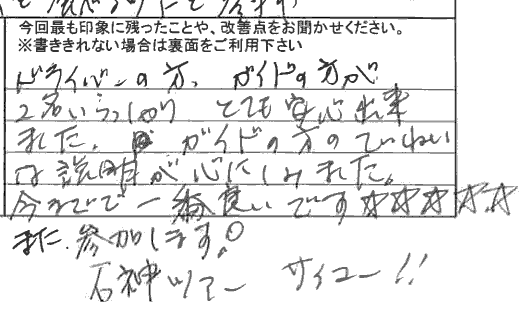 今回最も印象に残ったことや、改善点をお聞かせください。
※書ききれない場合は裏面をご利用下さい
ドライバーの方、ガイドの方が
2名いらっしゃり とても安心出来
ました。ガイドの方のていねい
な説明が心にしみました。
今までで一番良いです☆☆☆☆☆
また、参加します。
石神ツアー サイコー!!